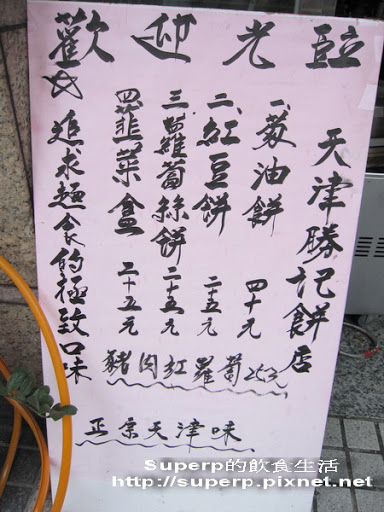 歡迎光臨
天津勝記餅店
一、蔥油餅 四十元
二、紅豆餅 二五元
三、蘿蔔絲餅 二十五元
四、韮菜盒 二十五元
追求麵食的極致口味
豬肉紅蘿蔔25元
正宗天津味
Superp的飲食生活
http://superp.pixnet.net